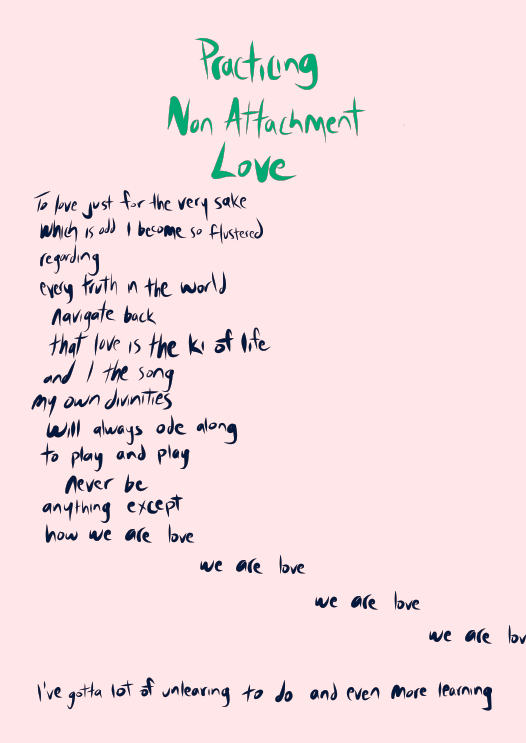 Practicing
Non Attachment
Love
To love just for the very sake
which is odd I become so flustered
regarding
every truth in the world
navigate back
that love is the ki of life
and I the song
my own divinities
will always ode along
to play and play
never be
anything except
how we are love
we are love
we are love
we are lov
I've gotta lot of unlearing to do and even more learning